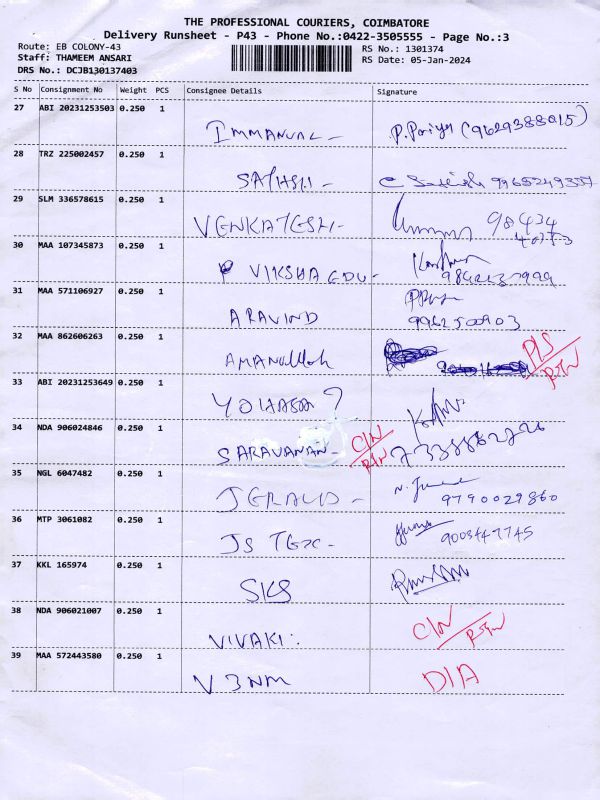 THE PROFESSIONAL COURIERS, COIMBATORE
Delivery Runsheet - P43 - Phone No.:0422-3505555 - Page No.:3
Route: EB COLONY-43
RS No.: 1301374
Staff: THAMEEM ANSARI
RS Date: 05-Jan-2024
DRS No.: DCJB130137403
S No Consignment No Weight PCS Consignee Details Signature
27 ABI 20231253503 0.250 1
IMMANUAL - P. Poriya (9629388015)
28 TRZ 225002457 0.250 1
SATHSH -
29 SLM 336578615 0.250 1
VENKATESH - 98434
30 MAA 107345873 0.250 1
P VIKSHA EDU -
31 MAA 571106927 0.250 1
ARAVIND 9962500903
32 MAA 862606263 0.250 1
AMANULLAH P/S RTN
33 ABI 20231253649 0.250 1
34 NDA 906024846 0.250 1
SARAVANAN - C/N RTN
35 NGL 6047482 0.250 1
JERALD - 9790029860
36 MTP 3061082 0.250 1
JS TEX - 9003447745
37 KKL 165974 0.250 1
SKS
38 NDA 906021007 0.250 1
VIVAKI. C/N RTN
39 MAA 572443580 0.250 1
V3NM D/A